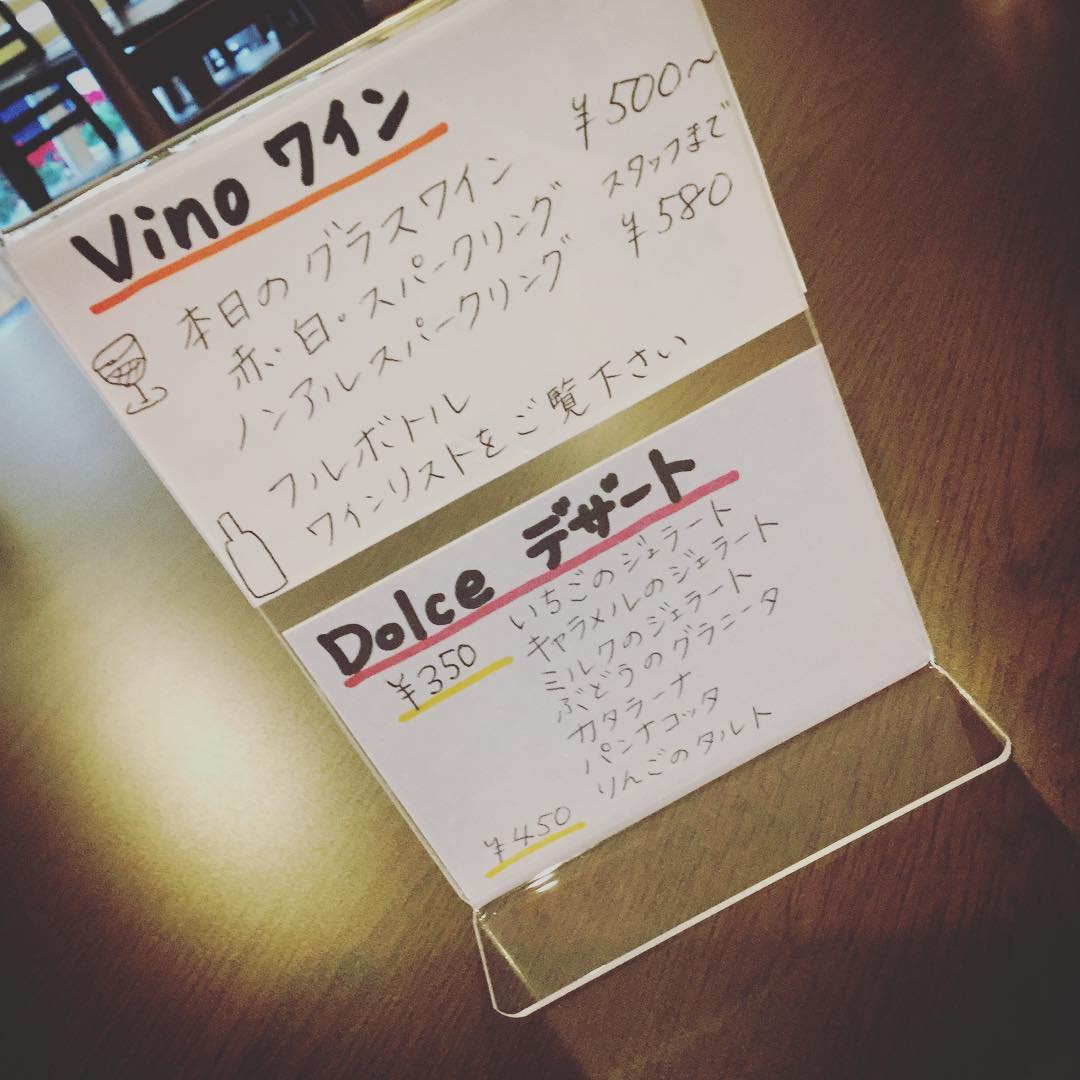 Vino ワイン
本日のグラスワイン ¥500〜
赤・白・スパークリング スタッフまで
ノンアルスパークリング ¥580
フルボトル
ワインリストをご覧下さい
Dolce デザート
¥350 いちごのジェラート
キャラメルのジェラート
ミルクのジェラート
ぶどうのグラニータ
カタラーナ
パンナコッタ
¥450 りんごのタルト